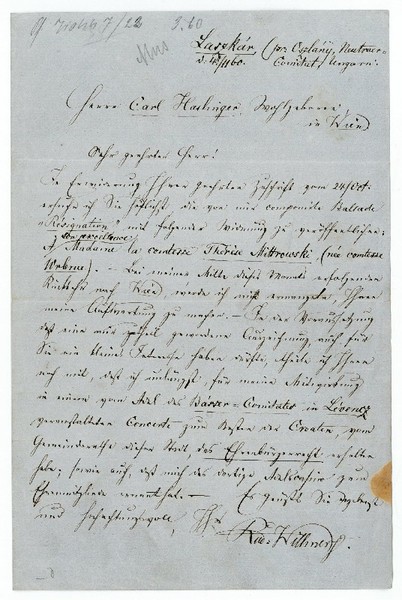 22 3.60
Laszkár, (pr Oszlány, Neutraer-
Comitat, Ungarn.
d. 4/11 60.
Herrn Carl Haslinger, Wohlgeboren,
in Wien
Sehr geehrter Herr!
In Erwiderung Ihrer geehrten Zuschrift vom 24/Oct.
ersuche ich Sie höflichst, die von mir componirte Ballade
"Résignation" mit folgender Widmung zu veröffentlichen:
Son excellence
A Madame la comtesse Thérèse Mittrowski (née comtesse
Wrbna). – Bei meiner Mitte dieses Monats erfolgenden
Rückkehr nach Wien, werde ich nicht ermangeln, Ihnen
meine Aufwartung zu machen. – In der Voraussetzung
daß eine mir zutheil gewordene Auszeichnung auch für
Sie ein kleines Interesse haben dürfte, theile ich Ihnen
noch mit, daß ich unlängst, für meine Mitwirkung
in einem vom Adel des Barser-Comitates in Levencz
veranstalteten Concerte zum Besten der Croaten, vom
Gemeinderathe dieser Stadt, das Ehrenbürgerrecht erhalten
habe; sowie auch, daß mich das dortige Adelscasino zum
Ehrenmitgliede ernannt hat. – Es grüßt Sie ergebenst
und hochachtungsvoll, Ihr
Rud. Willmers.